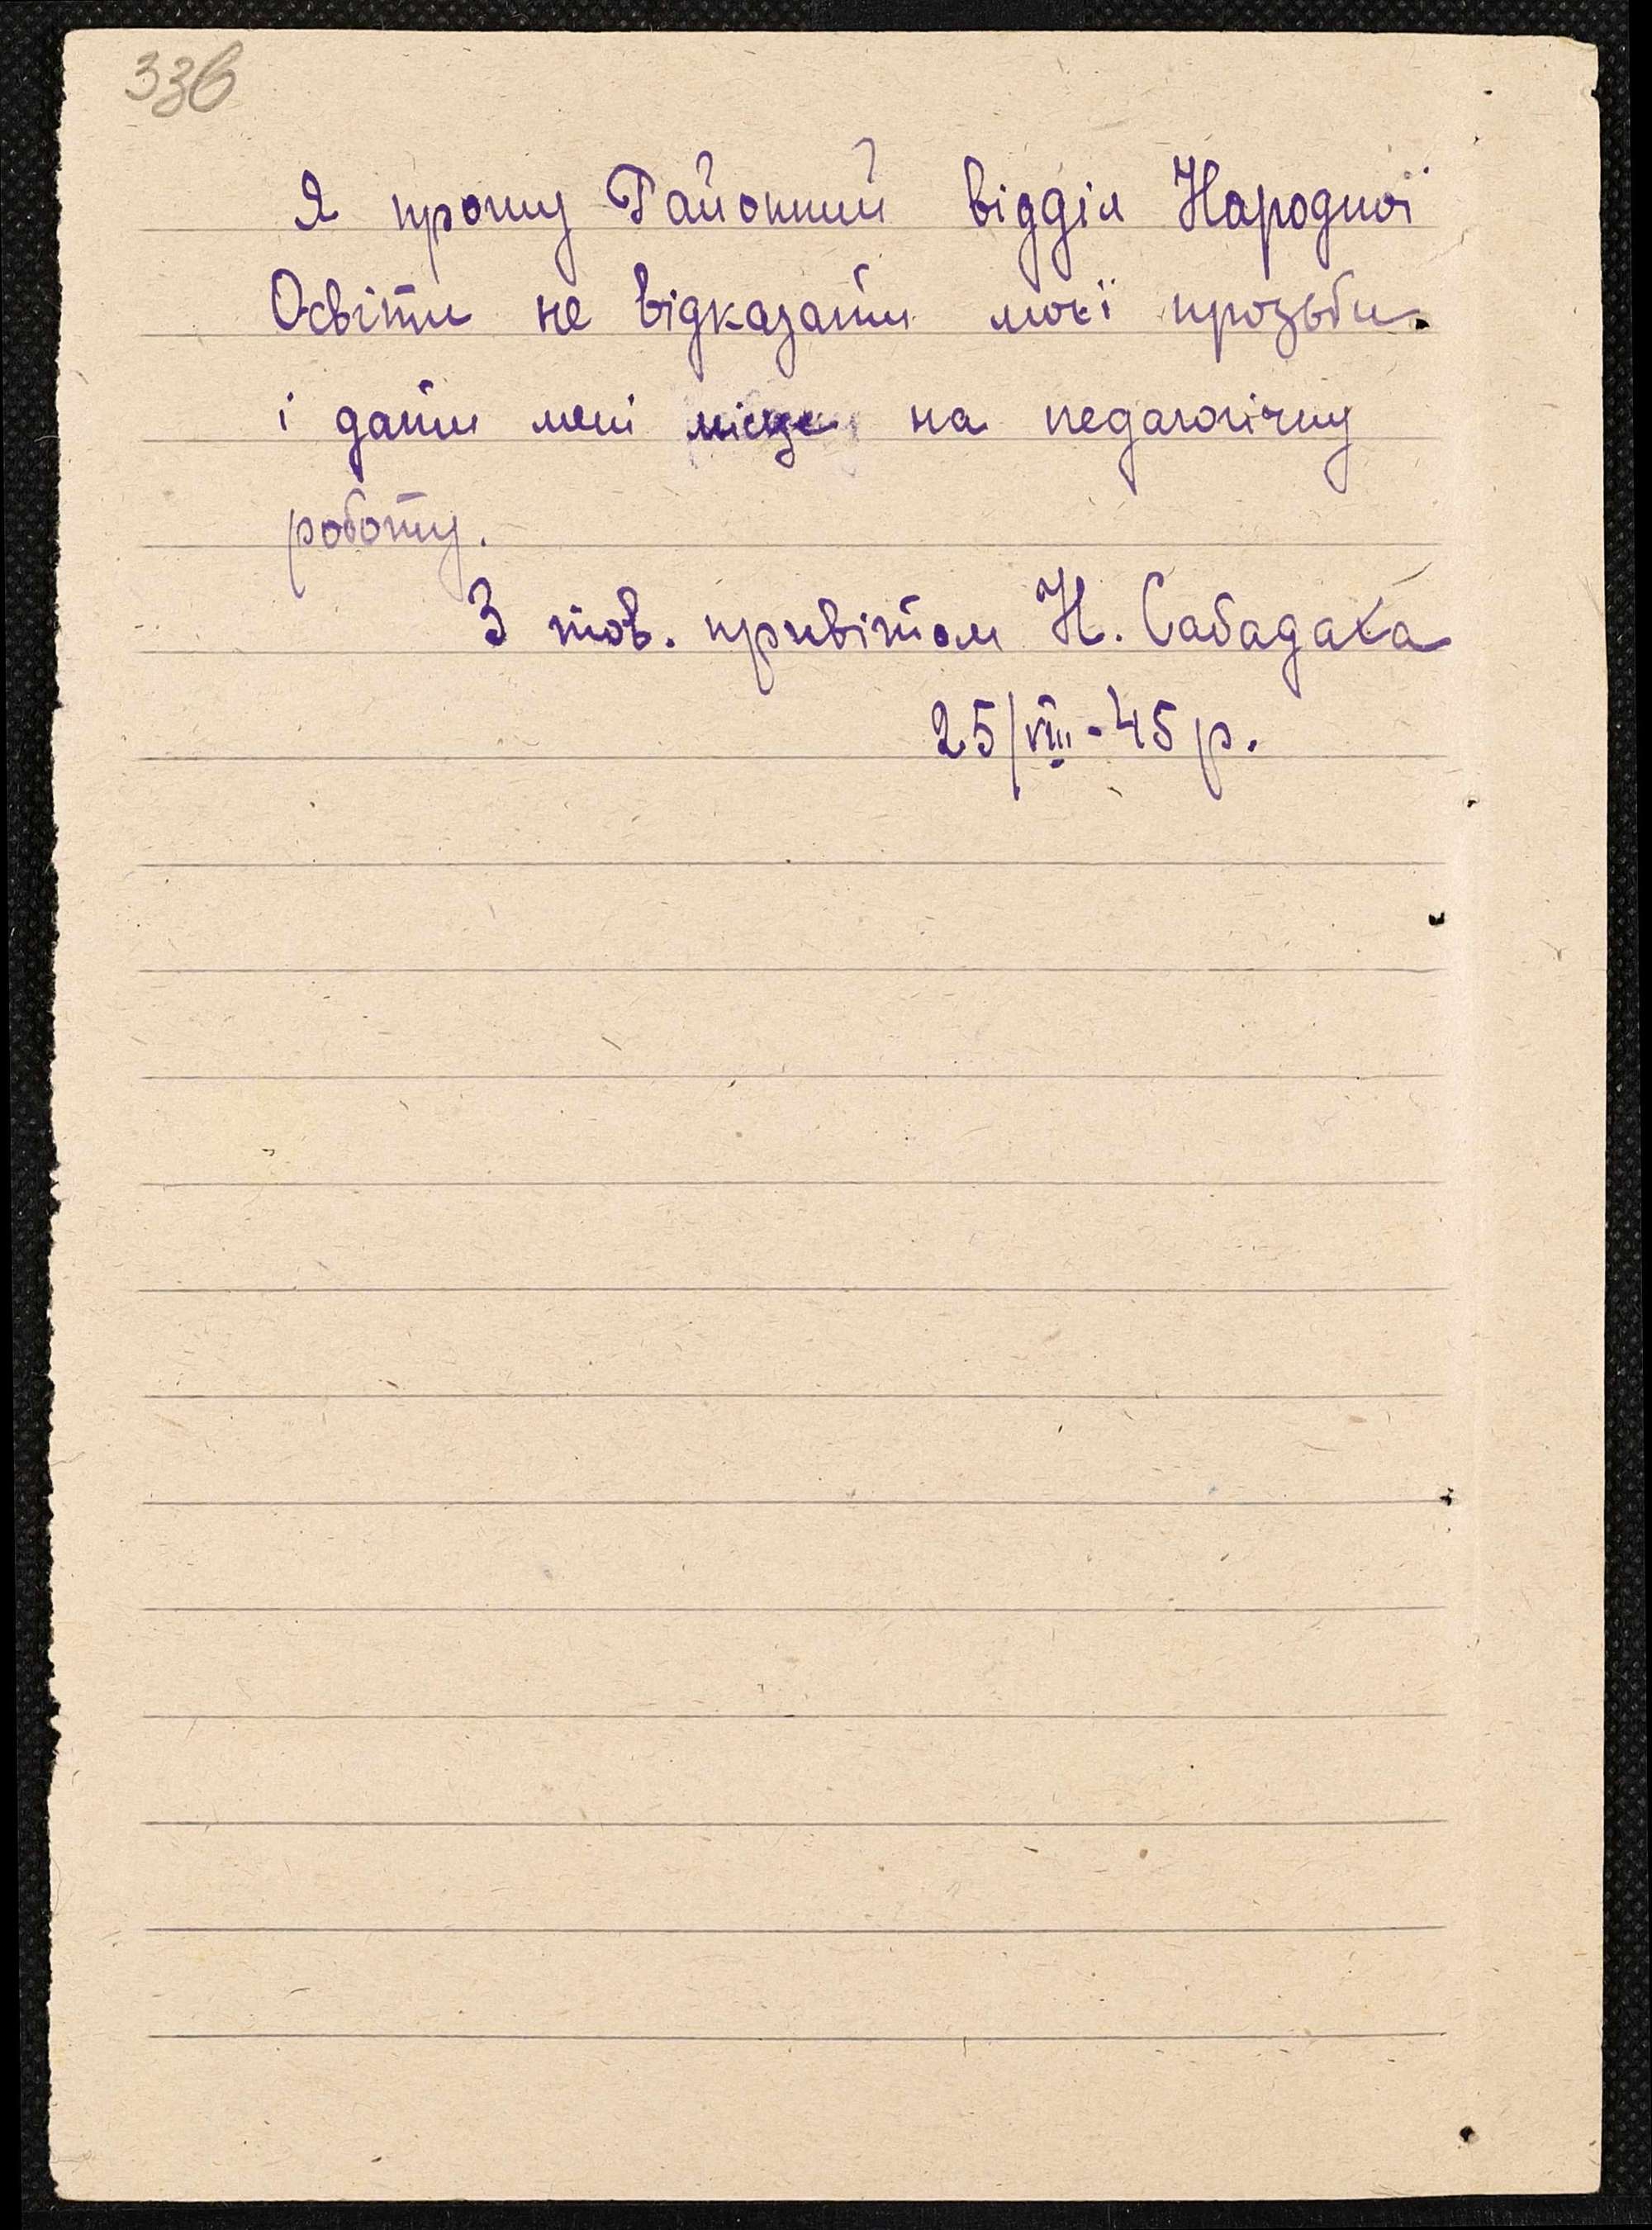 33в
Я прошу Районний відділ Народної
Освіти не відказати моєї прозьби.
і дати мені місце на педагогічну
роботу.
З тов. привітом Н. Сабадаха
25/VIII-45 р.